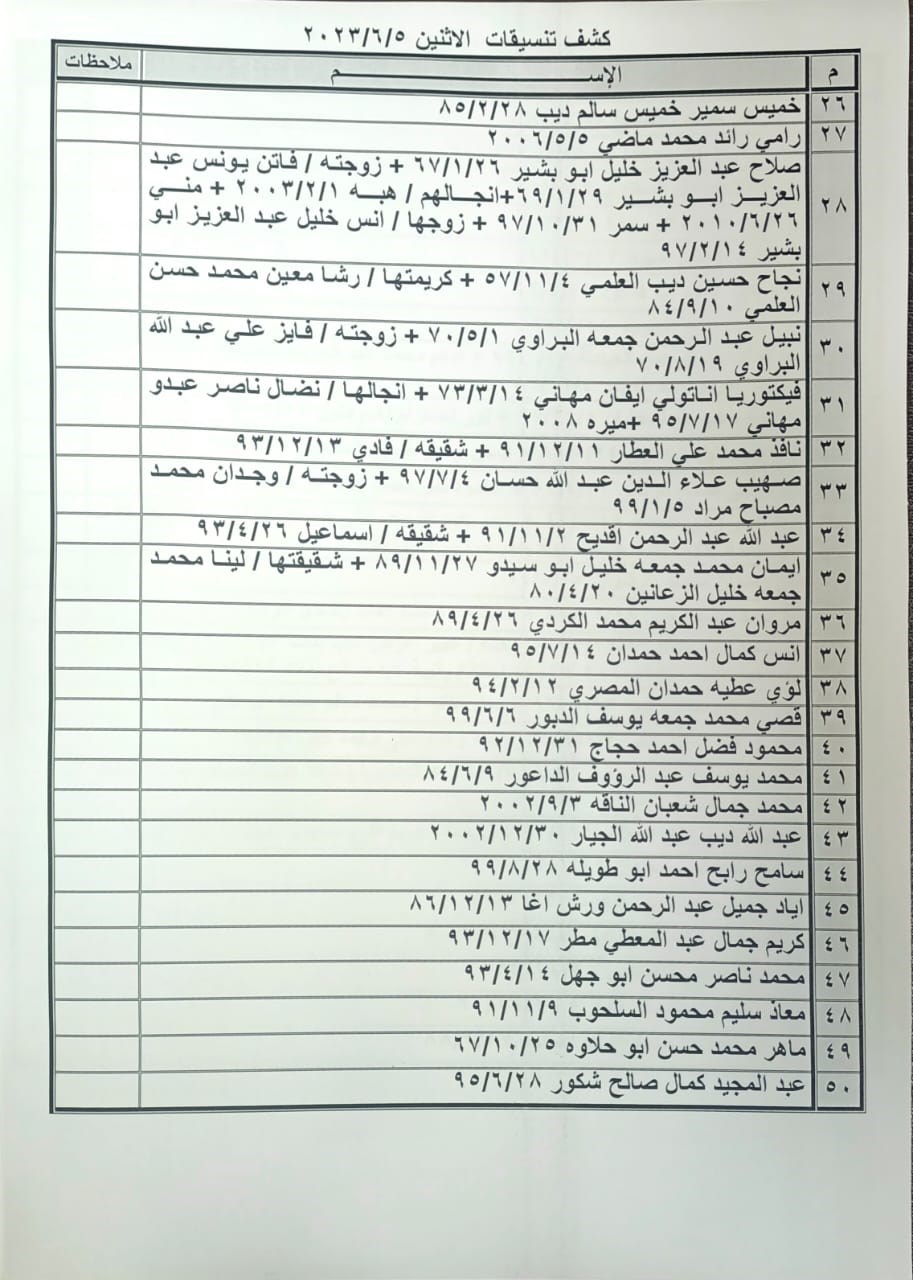 كشف تنسيقات الاثنين ٢٠٢٣/٦/٥
م الإســـــــــم ملاحظات
٢٦ خميس سمير خميس سالم ديب ٨٥/٢/٢٨
٢٧ رامي رائد محمد ماضي ٢٠٠٦/٥/٥
٢٨ صلاح عبد العزيز خليل ابو بشير ٦٧/١/٢٦ + زوجته / فاتن يونس عبد
العزيز ابو بشير ٦٩/١/٢٩+انجالهم / هبه ٢٠٠٣/٢/١ + مني
٢٠١٠/٦/٢٦ + سمر ٩٧/١٠/٣١ + زوجها / انس خليل عبد العزيز ابو
بشير ٩٧/٢/١٤
٢٩ نجاح حسين ديب العلمي ٥٧/١١/٤ + كريمتها / رشا معين محمد حسن
العلمي ٨٤/٩/١٠
٣٠ نبيل عبد الرحمن جمعه البراوي ٧٠/٥/١ + زوجته / فايز علي عبد الله
البراوي ٧٠/٨/١٩
٣١ فيكتوريا اناتولي ايفان مهاني ٧٣/٣/١٤ + انجالها / نضال ناصر عبدو
مهاني ٩٥/٧/١٧ +ميره ٢٠٠٨
٣٢ نافذ محمد علي العطار ٩١/١٢/١١ + شقيقه / فادي ٩٣/١٢/١٣
٣٣ صهيب علاء الدين عبد الله حسان ٩٧/٧/٤ + زوجته / وجدان محمد
مصباح مراد ٩٩/١/٥
٣٤ عبد الله عبد الرحمن اقديح ٩١/١١/٢ + شقيقه / اسماعيل ٩٣/٤/٢٦
٣٥ ايمان محمد جمعه خليل ابو سيدو ٨٩/١١/٢٧ + شقيقتها / لينا محمد
جمعه خليل الزعانين ٨٠/٤/٢٠
٣٦ مروان عبد الكريم محمد الكردي ٨٩/٤/٢٦
٣٧ انس كمال احمد حمدان ٩٥/٧/١٤
٣٨ لؤي عطيه حمدان المصري ٩٤/٢/١٢
٣٩ قصي محمد جمعه يوسف الدبور ٩٩/٦/٦
٤٠ محمود فضل احمد حجاج ٩٢/١٢/٣١
٤١ محمد يوسف عبد الرؤوف الداعور ٨٤/٦/٩
٤٢ محمد جمال شعبان الناقه ٢٠٠٢/٩/٣
٤٣ عبد الله ديب عبد الله الجيار ٢٠٠٢/١٢/٣٠
٤٤ سامح رابح احمد ابو طويله ٩٩/٨/٢٨
٤٥ اياد جميل عبد الرحمن ورش اغا ٨٦/١٢/١٣
٤٦ كريم جمال عبد المعطي مطر ٩٣/١٢/١٧
٤٧ محمد ناصر محسن ابو جهل ٩٣/٤/١٤
٤٨ معاذ سليم محمود السلحوب ٩١/١١/٩
٤٩ ماهر محمد حسن ابو حلاوه ٦٧/١٠/٢٥
٥٠ عبد المجيد كمال صالح شكور ٩٥/٦/٢٨